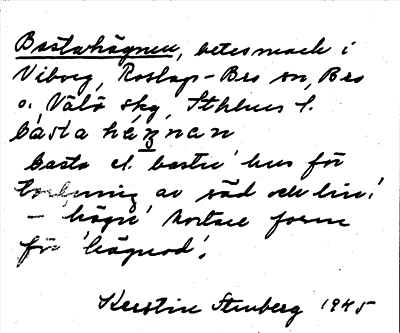 Bastuhägnen, betesmark i
Viborg, Roslags-Bro sn, Bro
o. Vätö skg, Sthlms l.
basta häʒnan
basta el. bastu 'hus för
torkning av säd och lin'.
– hägn' kortare form
för 'hägnad'.
Kerstin Stenberg 1945